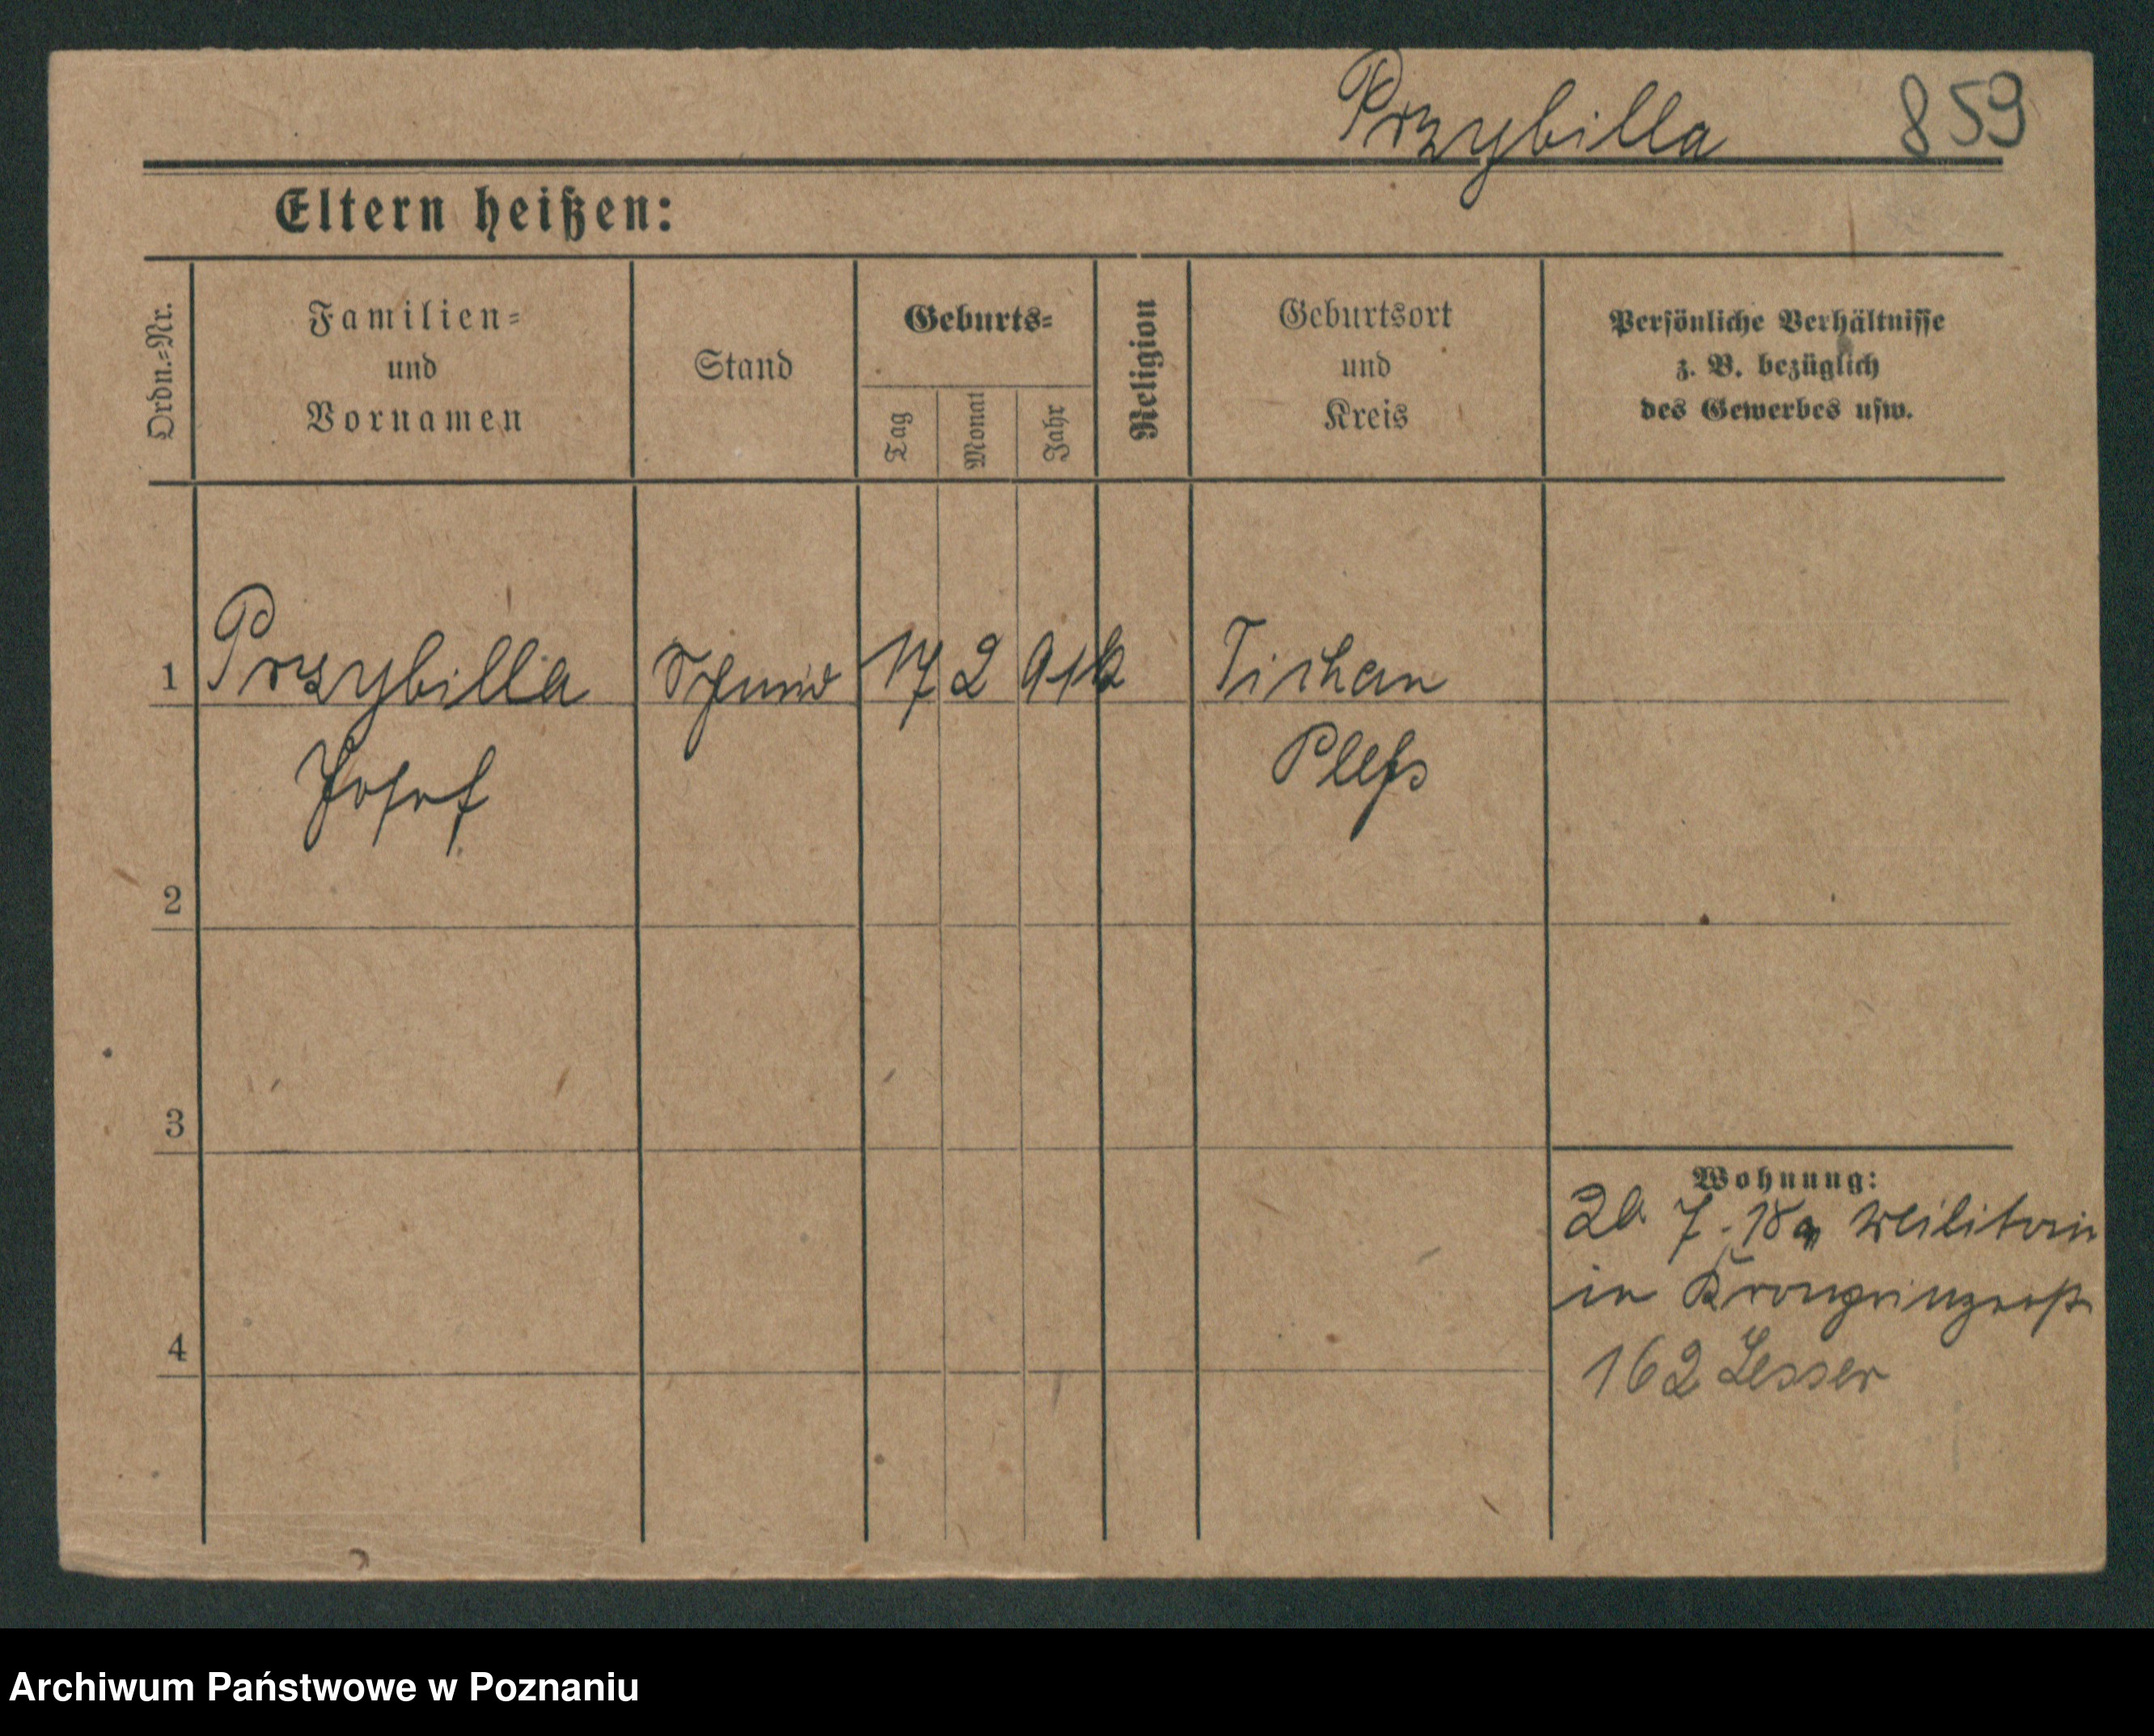 Przybilla 859
Eltern heißen:
Ordn.=Nr.
Familien=
und
Vornamen
Stand
Geburts=
Tag
Monat
Jahr
Religion
Geburtsort
und
Kreis
Persönliche Verhältnisse
z. B. bezüglich
des Gewerbes usw.
1 Przybilla Schmied 17 2 91 k Tichau
Josef Pleß
2
3
4
Wohnung:
20. 7. 18
in Kronprinzenstr
162 Lesser
Archiwum Państwowe w Poznaniu